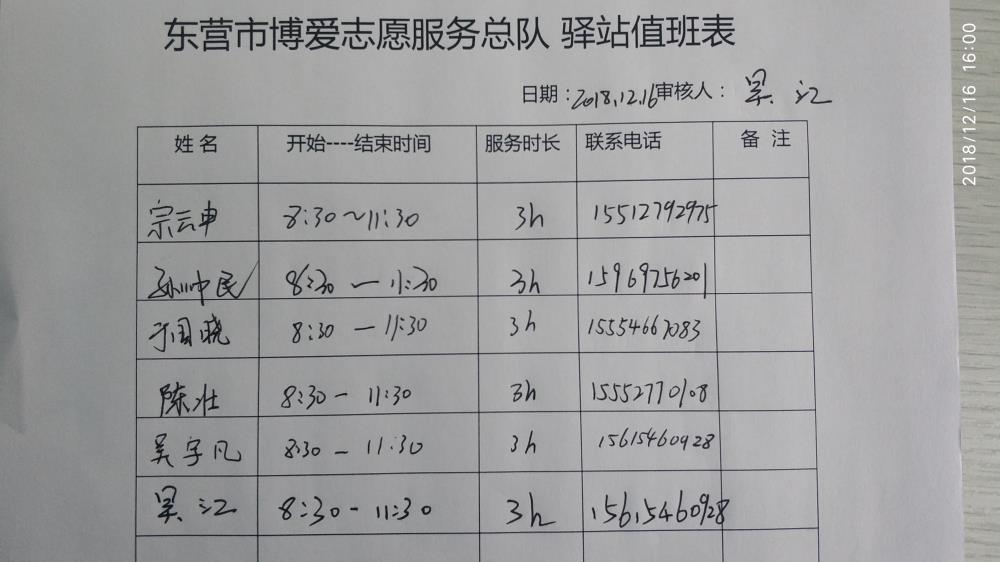 东营市博爱志愿服务总队 驿站值班表
日期:2018.12.16 审核人: 吴江
姓名 开始----结束时间 服务时长 联系电话 备注
宗云申 8:30~11:30 3h 15512792975
孙帅民 8:30 — 11:30 3h 15969756201
于国晓 8:30 — 11:30 3h 15554667083
陈壮 8:30 - 11:30 3h 15552770108
吴宇凡 8:30 - 11:30 3h 15615460928
吴江 8:30 - 11:30 3h 15615460928
2018/12/16 16:00